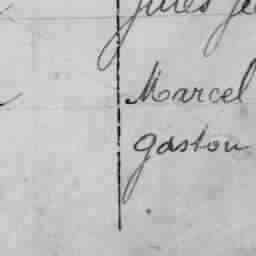 Jules
Marcel
gaston